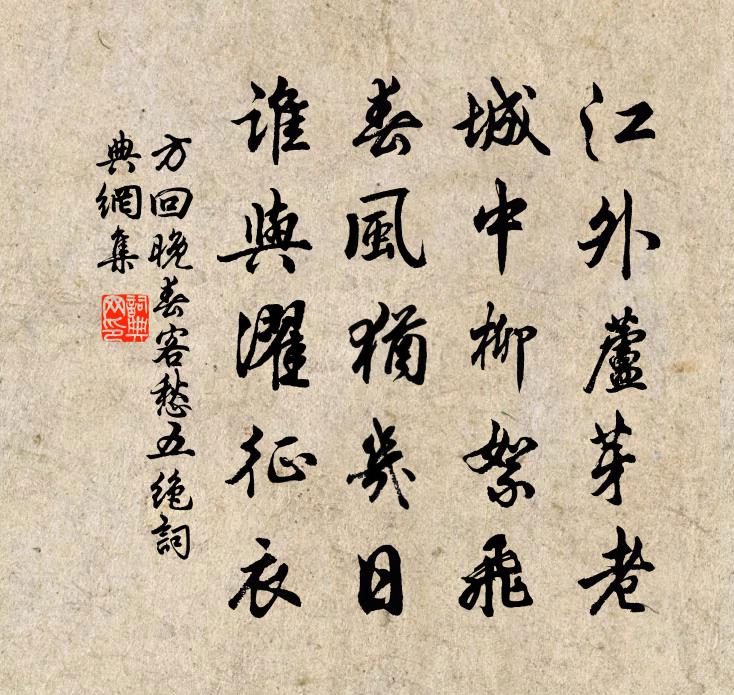 江外蘆芽老
城中柳絮飛
春風猶幾日
誰與濯征衣
方回晚春客愁五絶詞
典網集
詞典
网印